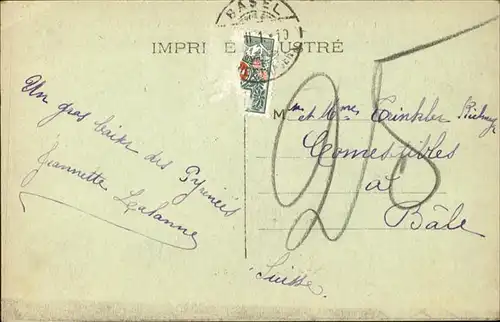 BASEL
IMPRI E USTRÉ
Un gros baiser des Pyrénées
Jeannette
Lausanne
Mr et Mmes
Comestibles
à
Bâle
Suisse
25